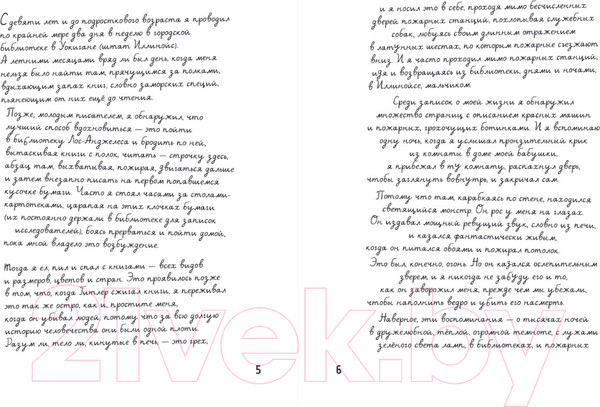 С девяти лет и до подросткового возраста я проводил
по крайней мере два дня в неделю в городской
библиотеке в Уокигане (штат Иллинойс).
А летними месяцами вряд ли был день, когда меня
нельзя было найти там, прячущимся за полками,
вдыхающим запах книг, словно заморских специй,
пьянеющим от них ещё до чтения.
Позже, молодым писателем, я обнаружил, что
лучший способ вдохновиться — это пойти
в библиотеку Лос-Анджелеса и бродить по ней,
вытаскивая книги с полок, читать — строчку здесь,
абзац там, выхватывая, пожирая, двигаться дальше
и затем внезапно писать на первом попавшемся
кусочке бумаги. Часто я стоял часами за столами-
картотеками, царапая на этих клочках бумаги
(их постоянно держали в библиотеке для записок
исследователей), боясь прерваться и пойти домой,
пока мной владело это возбуждение.
Тогда я ел, пил и спал с книгами — всех видов
и размеров, цветов и стран. Это проявилось позже
в том, что, когда Гитлер сжигал книги, я переживал
это так же остро, как и, простите меня,
когда он убивал людей, потому что за всю долгую
историю человечества они были одной плоти.
Разум ли, тело ли, кинутые в печь, — это грех,
5
и я носил это в себе, проходя мимо бесчисленных
дверей пожарных станций, похлопывая служебных
собак, любуясь своим длинным отражением
в латунных шестах, по которым пожарные съезжают
вниз. И я часто проходил мимо пожарных станций,
идя и возвращаясь из библиотеки, днями и ночами,
в Иллинойсе, мальчиком.
Среди записок о моей жизни я обнаружил
множество страниц с описанием красных машин
и пожарных, грохочущих ботинками. И я вспоминаю
одну ночь, когда я услышал пронзительный крик
из комнаты в доме моей бабушки,
я прибежал в ту комнату, распахнул дверь,
чтобы заглянуть вовнутрь, и закричал сам.
Потому что там, карабкаясь по стене, находился
светящийся монстр. Он рос у меня на глазах.
Он издавал мощный ревущий звук, словно из печи,
и казался фантастически живым,
когда он питался обоями и пожирал потолок.
Это был, конечно, огонь. Но он казался ослепительным
зверем, и я никогда не забуду его и то,
как он заворожил меня, прежде чем мы убежали,
чтобы наполнить ведро и убить его насмерть.
Наверное, эти воспоминания — о тысячах ночей
в дружелюбной, тёплой, огромной темноте, с лужами
зелёного света ламп, в библиотеках, и пожарных
6
21vek.by